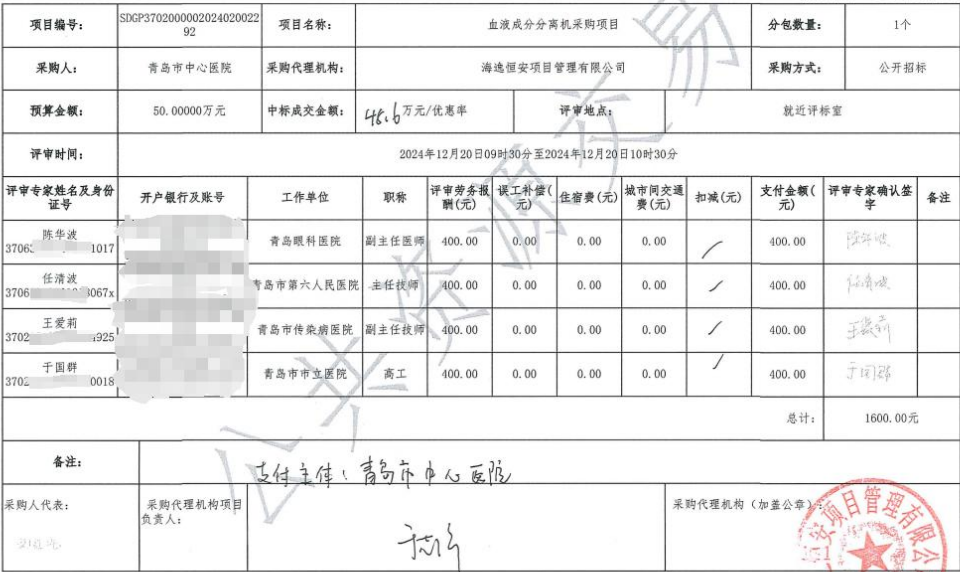 项目编号: SDGP370200000202402002292 项目名称: 血液成分分离机采购项目 分包数量: 1个
采购人: 青岛市中心医院 采购代理机构: 海逸恒安项目管理有限公司 采购方式: 公开招标
预算金额: 50.00000万元 中标成交金额: 48.6万元/优惠率 评审地点: 就近评标室
评审时间: 2024年12月20日09时30分至2024年12月20日10时30分
评审专家姓名及身份证号 开户银行及账号 工作单位 职称 评审劳务报酬(元) 误工补偿(元) 住宿费(元) 城市间交通费(元) 扣减(元) 支付金额(元) 评审专家确认签字 备注
陈华波 青岛眼科医院 副主任医师 400.00 0.00 0.00 0.00 / 400.00 陈华波
3706 1017
任清波 青岛市第六人民医院 主任技师 400.00 0.00 0.00 0.00 / 400.00 任清波
3706 067x
王爱莉 青岛市传染病医院 副主任技师 400.00 0.00 0.00 0.00 / 400.00 王爱莉
3702 4925
于国群 青岛市市立医院 高工 400.00 0.00 0.00 0.00 / 400.00 于国群
3702 0018
总计: 1600.00元
备注: 支付主体:青岛市中心医院
采购人代表: 采购代理机构项目负责人: 采购代理机构（加盖公章）:
安项目管理有限公
公共资源交易